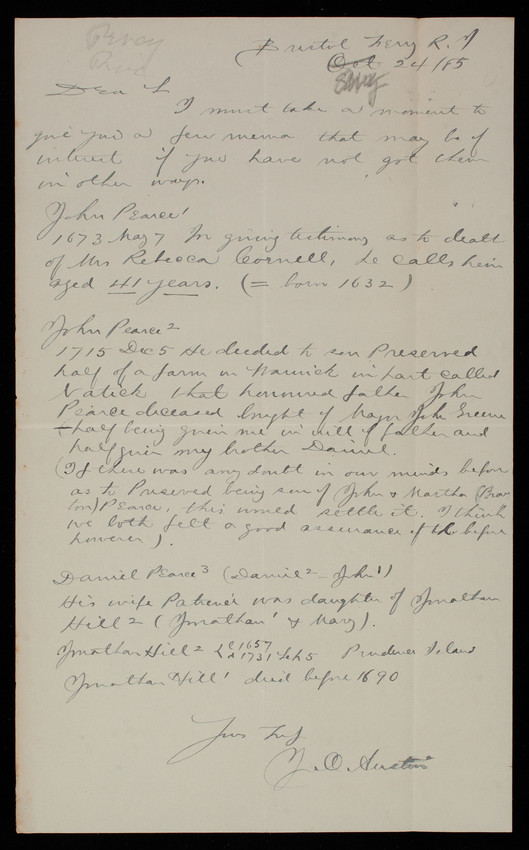 Bristol Ferry R. I
Oct 24/85
Dear
I must take a moment to
give you a few memo that may be of
interest if you have not got them
in other ways.
John Pearce 1
1673 May 7 In giving testimony as to death
of Mrs Rebecca Cornell, he calls him
aged 41 years. (= born 1632)
John Pearce 2
1715 Dec 5 He deeded to son Preserved
half of a farm in Warwick in part called
Natick that honoured father John
Pearce deceased bought of Major John Greene
half being given me in will of father and
half given my brother Daniel.
(If there was any doubt in our minds before
as to Preserved being son of John & Martha (Bray
ton) Pearce, this would settle it. I think
we both felt a good assurance of the before
however).
Daniel Pearce 3 (Daniel 2 - John 1)
His wife Patience was daughter of Jonathan
Hill 2 (Jonathan 1 & Mary).
Jonathan Hill 2 1657
1731 Feb 5 Prudence Island
Jonathan Hill 1 died before 1690
Yours Truly
J. O. Austin